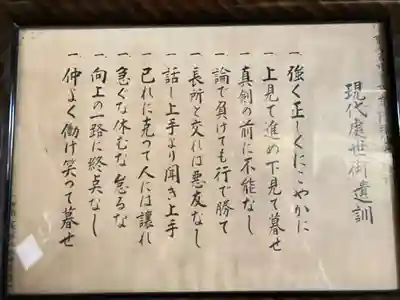 現代処世御遺訓
一 強く正しくにこやかに
一 上見て進め下見て暮せ
一 真剣の前に不能なし
一 論で負けても行で勝て
一 長所と交れば悪友なし
一 話し上手より聞き上手
一 己れに克って人には譲れ
一 急ぐな休むな怠るな
一 向上の一路に終点なし
一 仲よく働け笑って暮せ